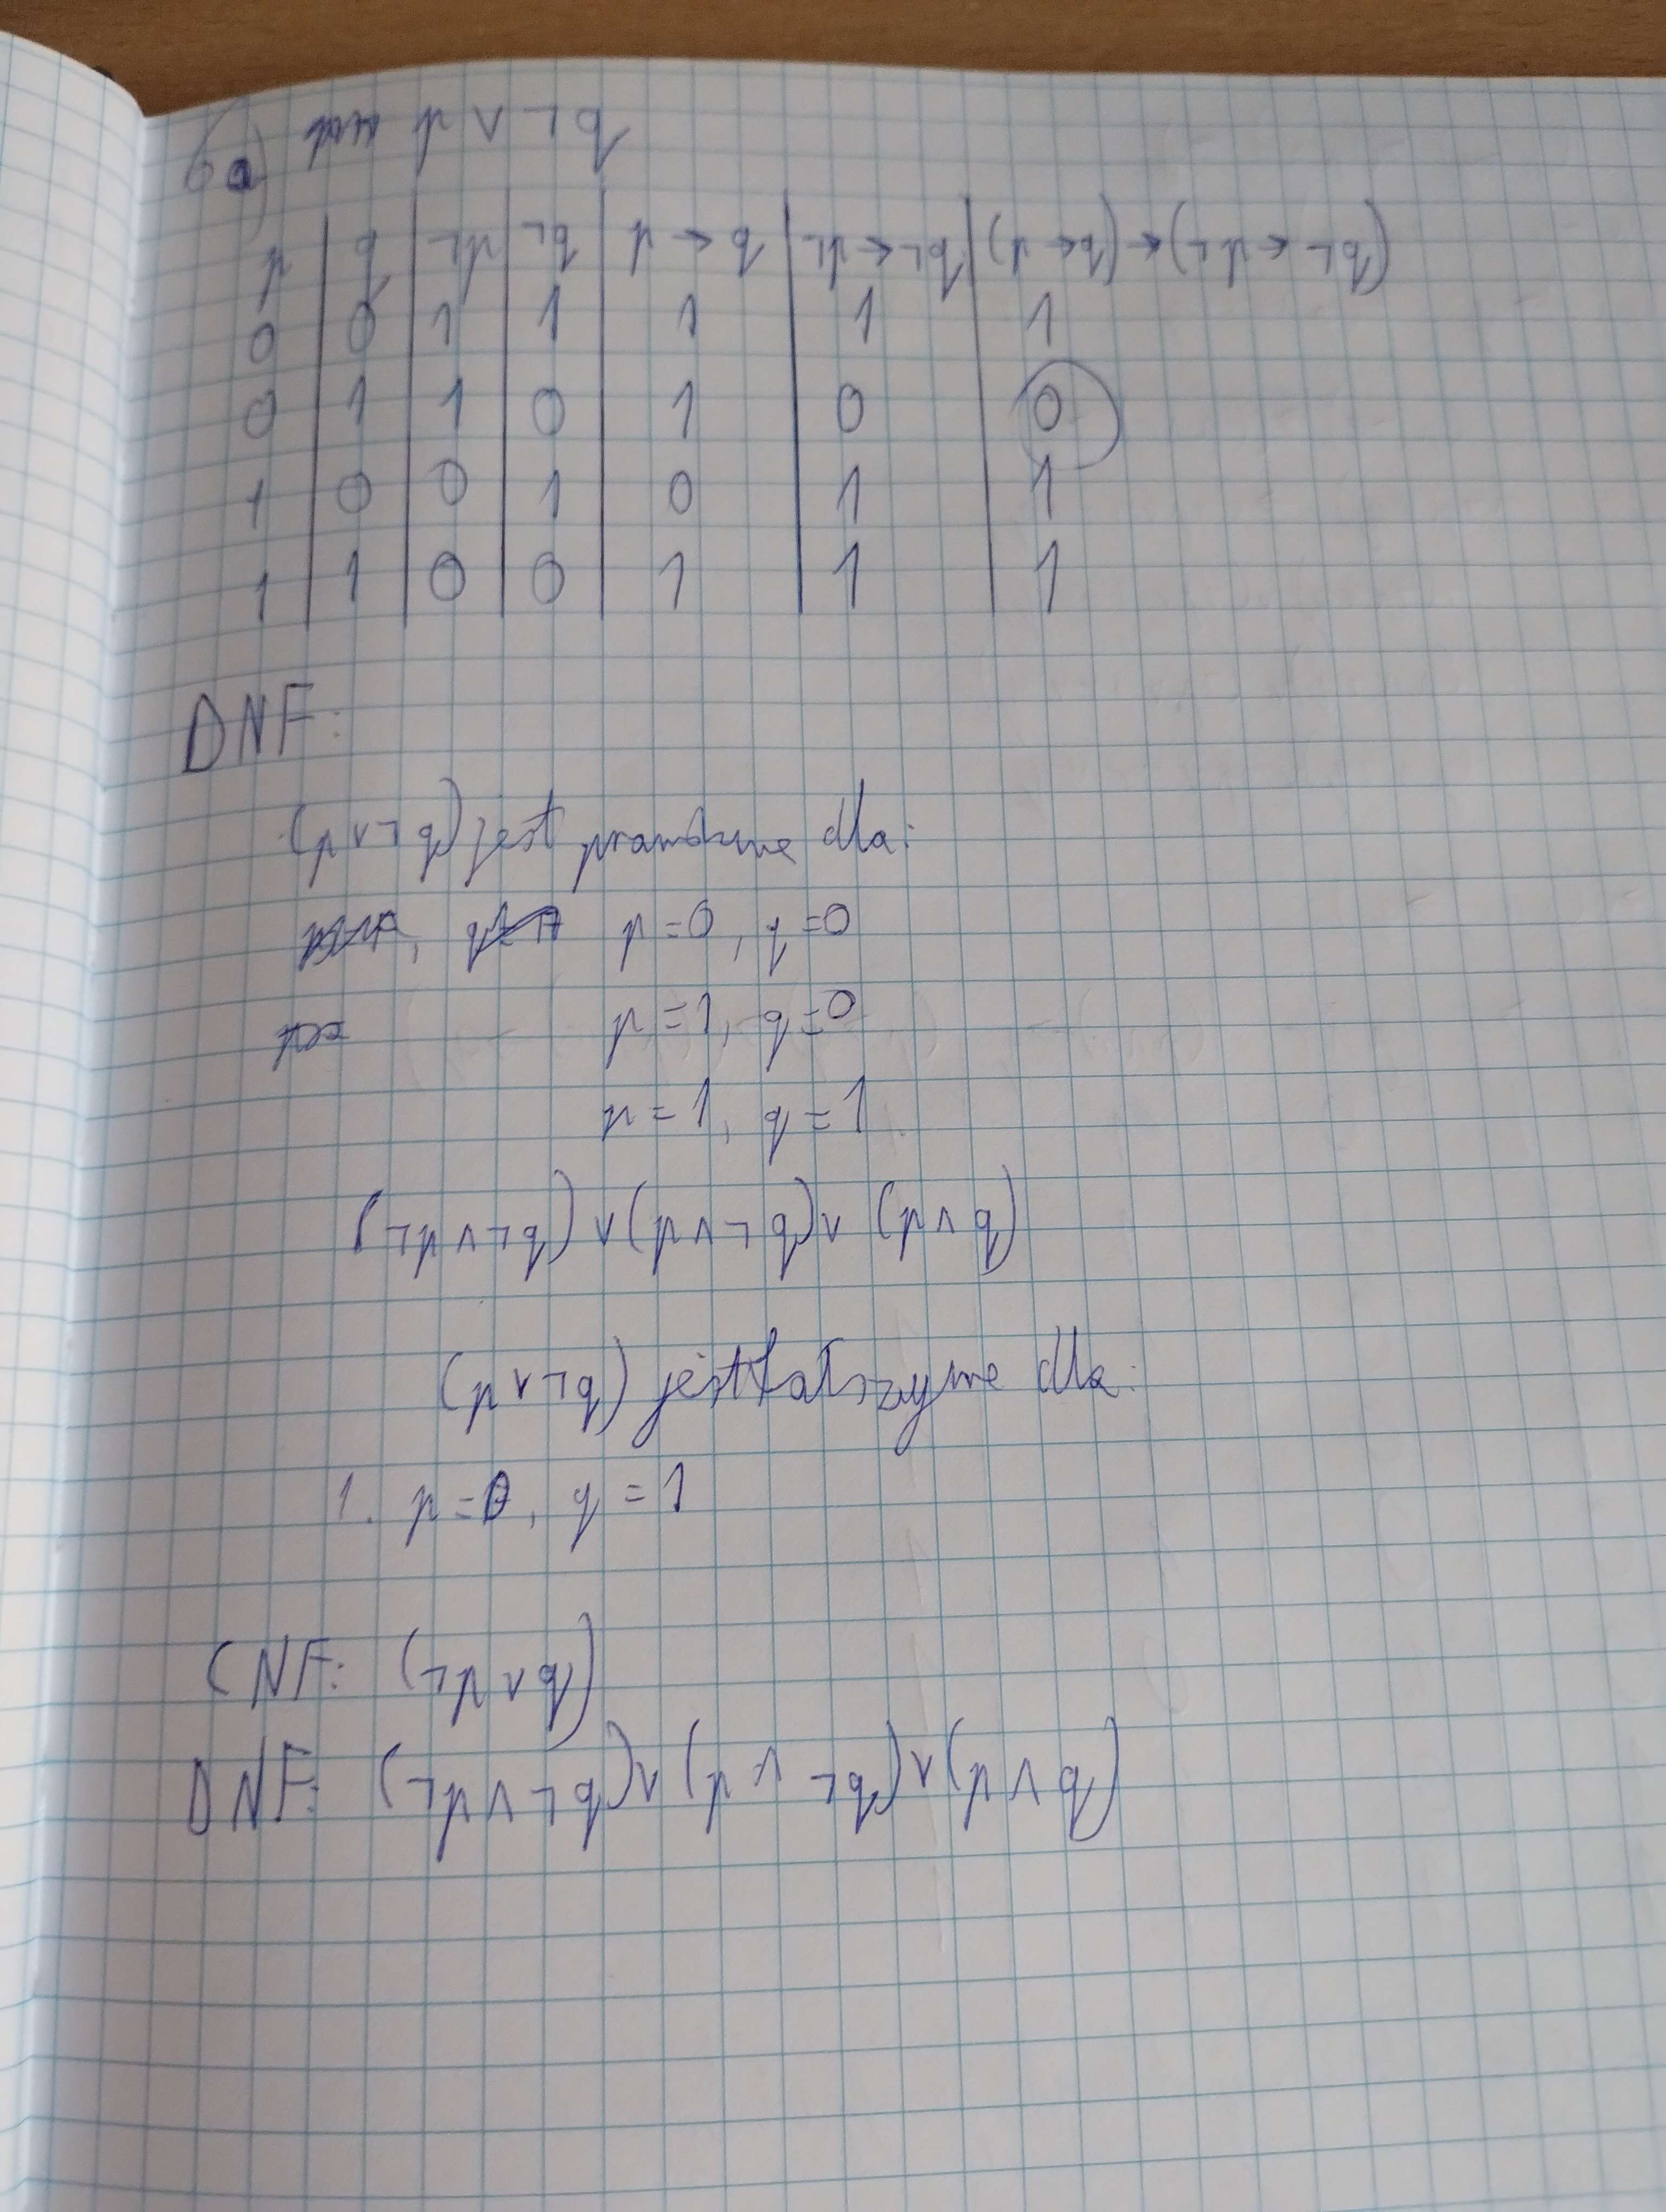 6a) p ∨ ¬q
p | q | ¬p | ¬q | p → q | ¬p → ¬q | (p → q) → (¬p → ¬q)
0 | 0 | 1 | 1 | 1 | 1 | 1
0 | 1 | 1 | 0 | 1 | 0 | 0
1 | 0 | 0 | 1 | 0 | 1 | 1
1 | 1 | 0 | 0 | 1 | 1 | 1
DNF:
(p ∨ ¬q) jest prawdziwe dla:
p = 0, q = 0
p = 1, q = 0
p = 1, q = 1
(¬p ∧ ¬q) ∨ (p ∧ ¬q) ∨ (p ∧ q)
(p ∨ ¬q) jest fałszywe dla:
1. p = 0, q = 1
CNF: (¬p ∨ q)
DNF: (¬p ∧ ¬q) ∨ (p ∧ ¬q) ∨ (p ∧ q)